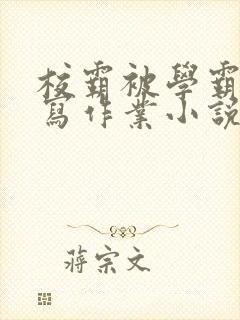 校霸被學霸
寫作業小說
蔣宗文